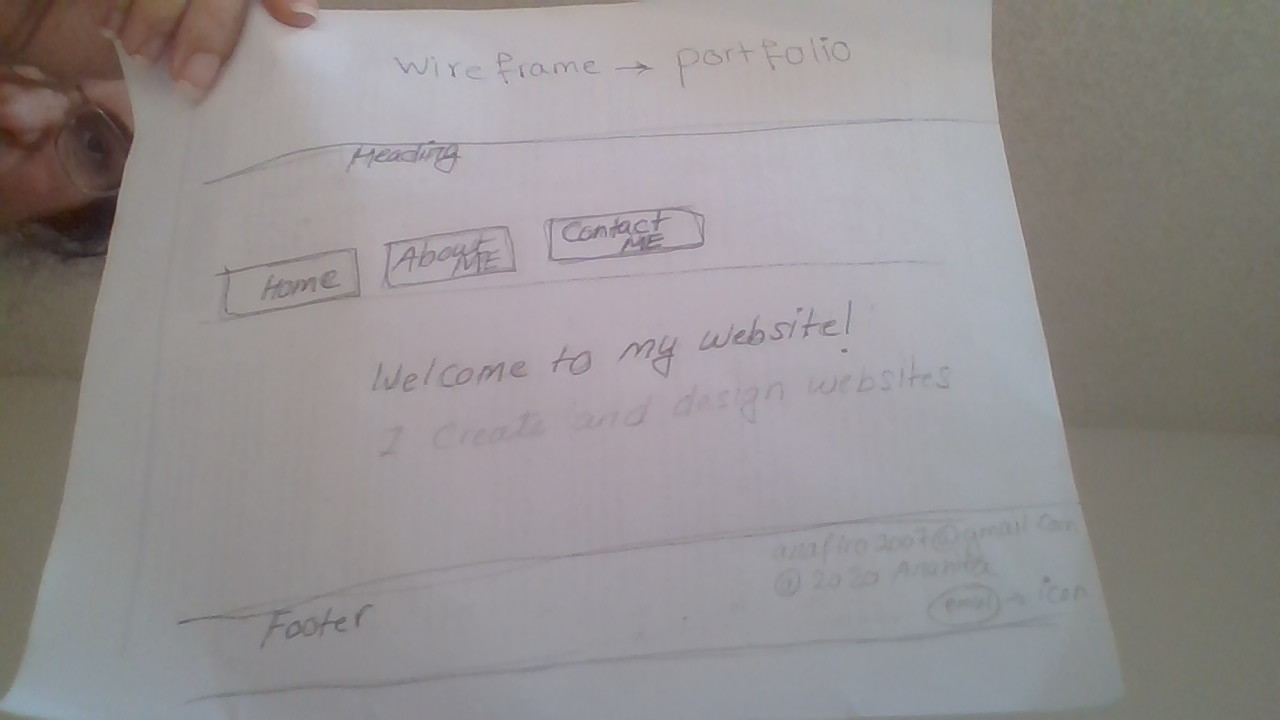 Wireframe → portfolio
Heading
Home
About ME
Contact ME
Welcome to my website!
I Create and design websites
2007@gmail
© 2020
email → icon
Footer